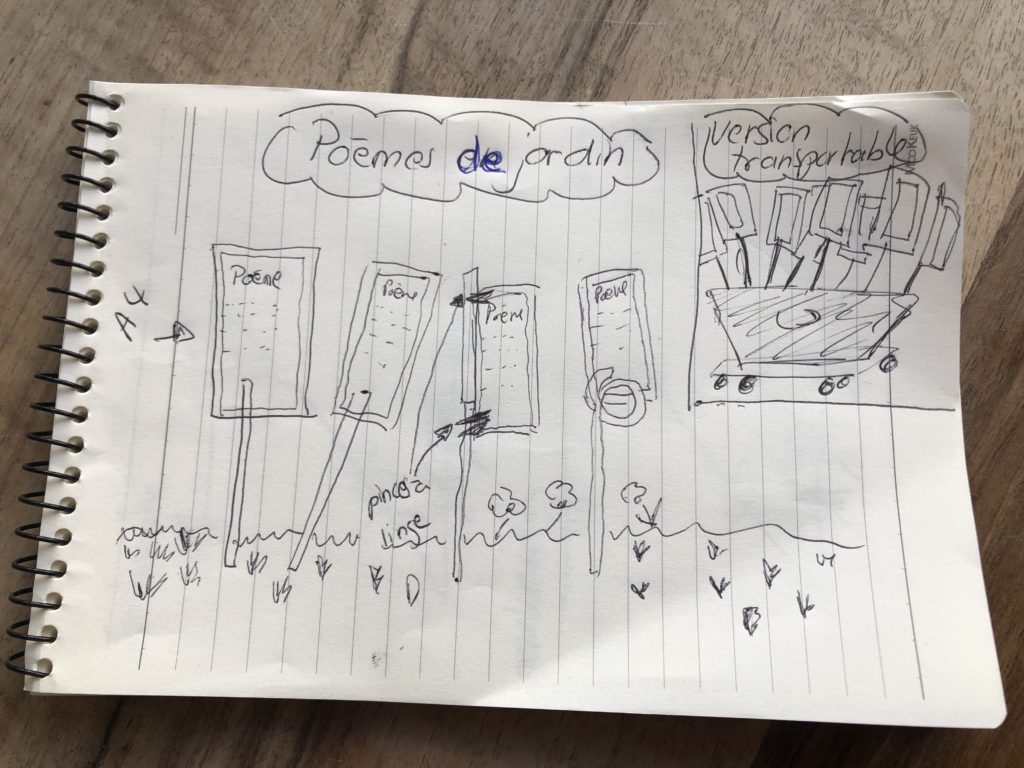 Poèmes de jardin
version
transportable
A4
Poème
Poème
Poème
Poème
pinces à
linge